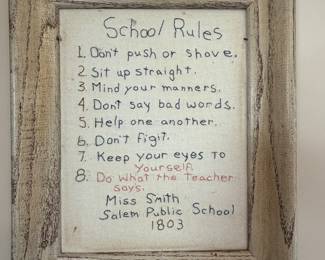 School Rules
1. Don't push or shove.
2. Sit up straight.
3. Mind your manners.
4. Dont say bad words.
5. Help one another.
6. Don't figit.
7. Keep your eyes to
yourself.
8. Do What the Teacher
says.
Miss Smith
Salem Public School
1803